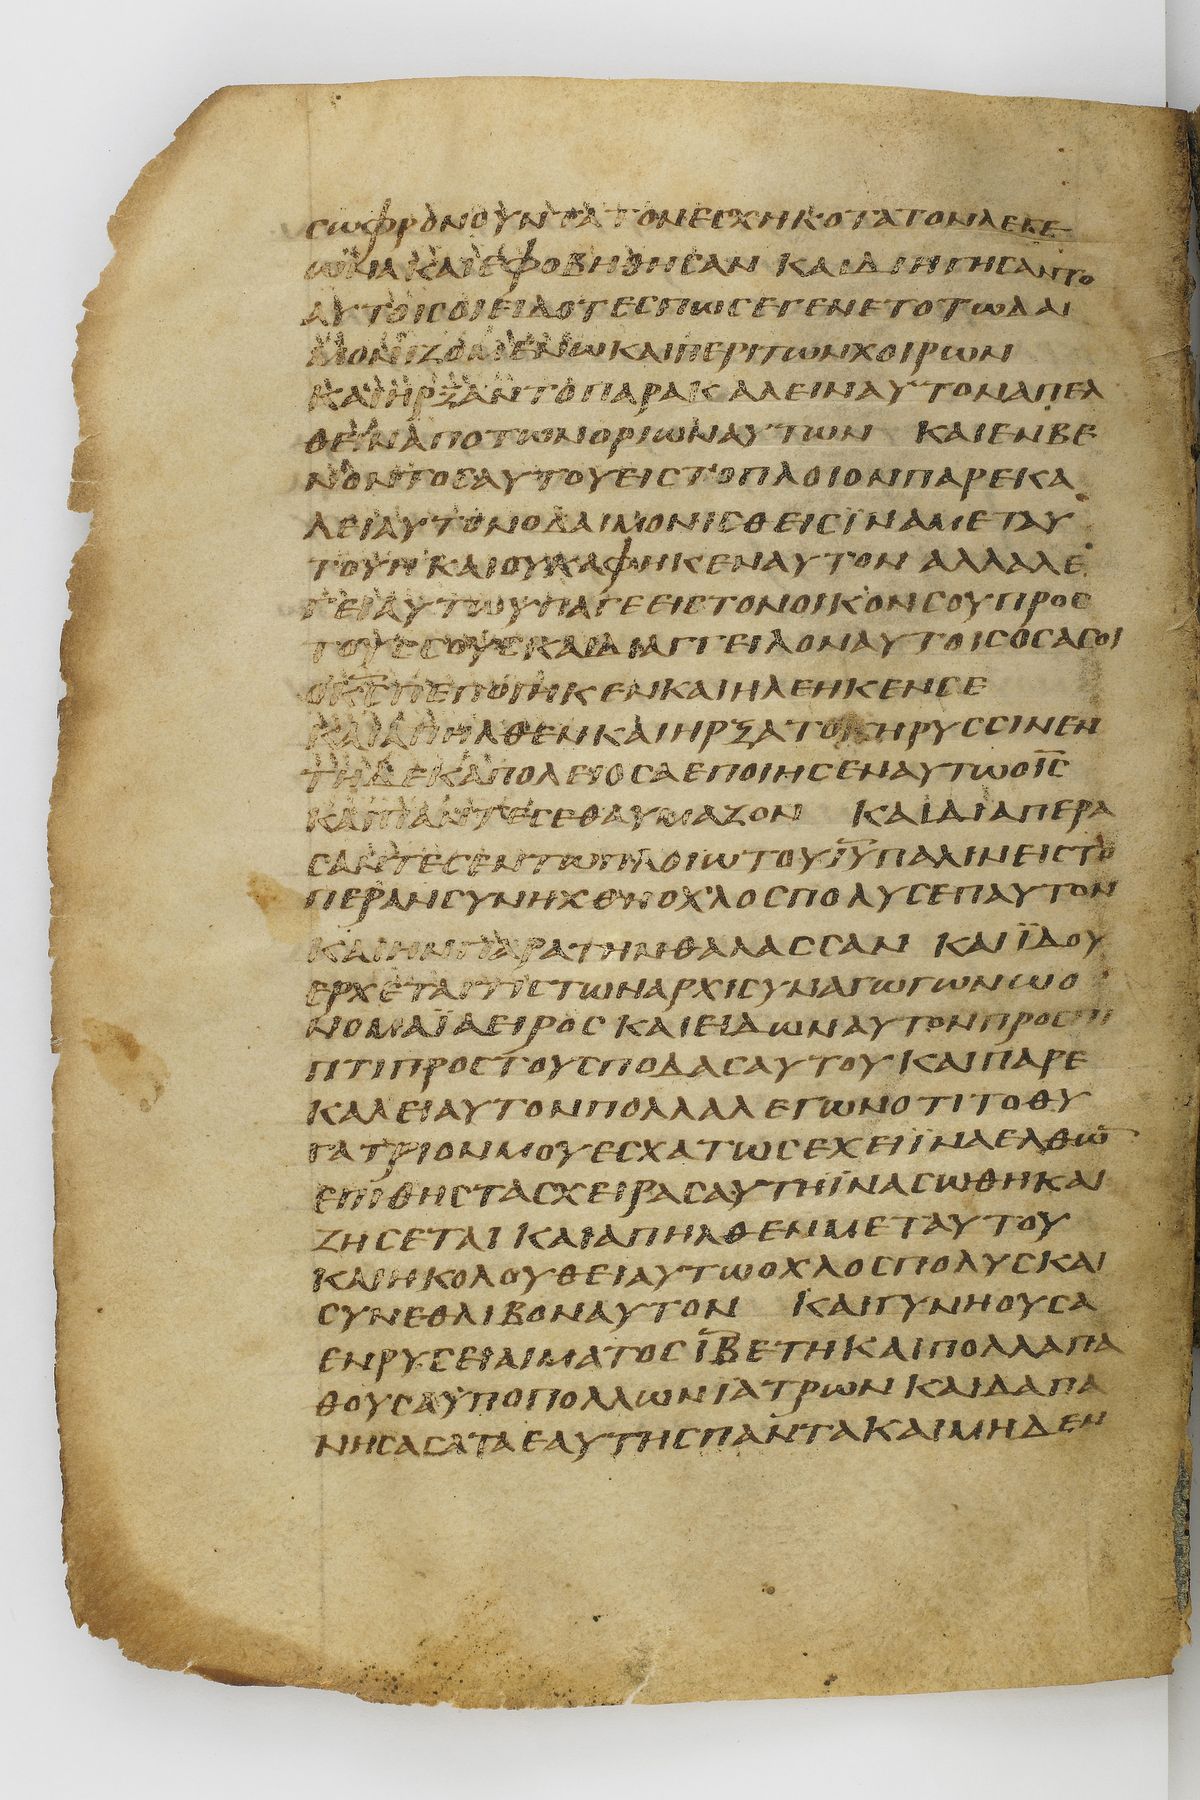 ϹωφρονουνταΤονεϲχηκοταΤονλεγε
ωνα και εφοβηθηϲαν και διηγηϲαντο
αυτοιϲ οι ειδοτεϲ πωϲ εγενετο τω δαι
μονιζομενω και περι των χοιρων
και ηρξαντο παρακαλειν αυτον απελ
θειν απο των οριων αυτων και ενβε
νοντοϲ αυτου ειϲ το πλοιον παρεκα
λει αυτον ο δαιμονιϲθειϲ ϊνα μετ αυ
του η και ουκ αφηκεν αυτον αλλα λε
γει αυτω υπαγε ειϲ τον οικον ϲου προϲ
τουϲ ϲουϲ και διαγγειλον αυτοιϲ οϲα ϲοι
ο κ̅ϲ̅ πεποιηκεν και ηλεηκεν ϲε
και απηλθεν και ηρξατο κηρυϲϲιν εν
τη δεκαπολει οϲα εποιηϲεν αυτω ο ι̅ϲ̅
και παντεϲ εθαυμαζον και διαπερα
ϲαντεϲ εν τω πλοιω του ι̅υ̅ παλιν ειϲ το
περαν ϲυνηχθη οχλοϲ πολυϲ επ αυτον
και ην παρα την θαλαϲϲαν και ϊδου
ερχεται τιϲ των αρχιϲυναγωγων ω ο
νομα ϊαειροϲ και ειδων αυτον προϲπι
πτι προϲ τουϲ ποδαϲ αυτου και παρε
καλει αυτον πολλα λεγων οτι το θυ
γατριον μου εϲχατωϲ εχει ϊνα ελθω̅
επιθηϲ ταϲ χειραϲ αυτη ϊνα ϲωθη και
ζηϲεται και απηλθεν μετ αυτου
και ηκολουθει αυτω οχλοϲ πολυϲ και
ϲυνεθλιβον αυτον και γυνη ουϲα
εν ρυϲει αιματοϲ ι̅β̅ ετη και πολλα πα
θουϲα υπο πολλων ιατρων και δαπα
νηϲαϲα τα εαυτηϲ παντα και μηδεν